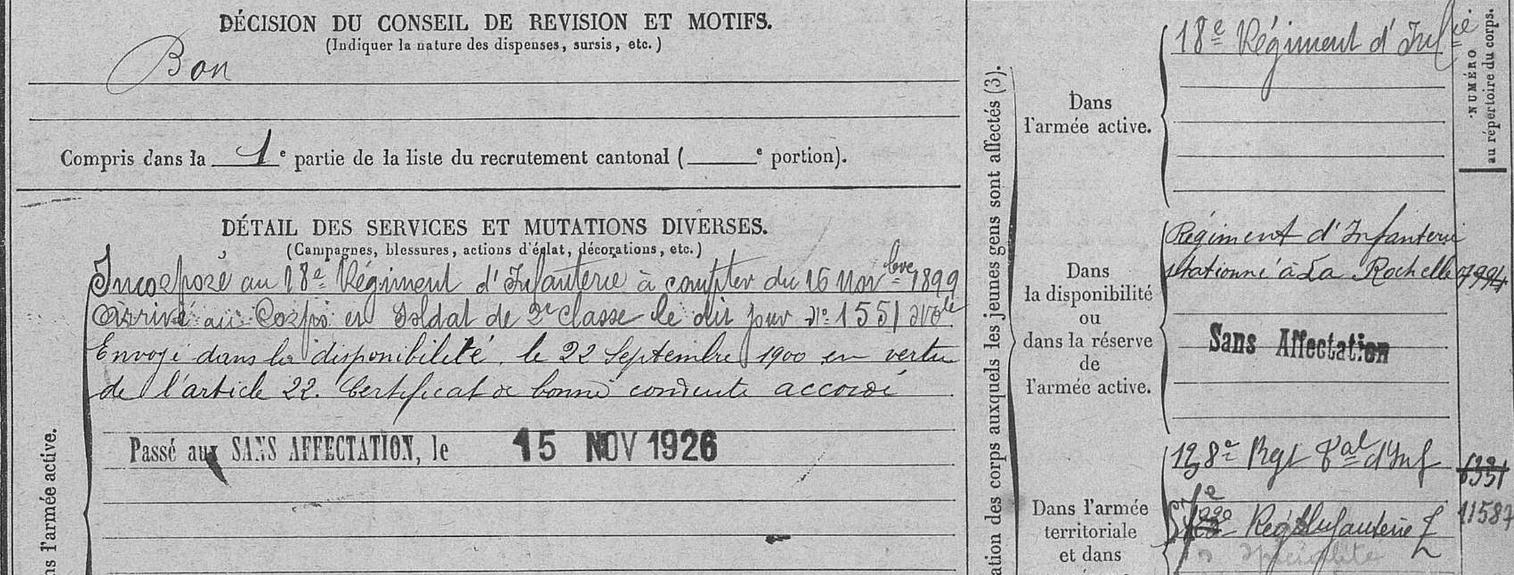 DÉCISION DU CONSEIL DE REVISION ET MOTIFS.
(Indiquer la nature des dispenses, sursis, etc.)
Bon
Compris dans la 1e partie de la liste du recrutement cantonal (e portion).
DÉTAIL DES SERVICES ET MUTATIONS DIVERSES.
(Campagnes, blessures, actions d'éclat, décorations, etc.)
Incorporé au 18e Régiment d'Infanterie à compter du 16 Novbre 1899
Arrivé au Corps et Soldat de 2e classe le dit jour No 1551 Mle
Envoyé dans la disponibilité le 22 Septembre 1900 en vertu
de l'article 22. Certificat de bonne conduite accordé
Passé aux SANS AFFECTATION, le 15 NOV 1926
ns l'armée active.
ation des corps auxquels les jeunes gens sont affectés (3).
Dans
l'armée active.
18e Régiment d'Infie
NUMÉRO
au répertoire du corps.
Dans
la disponibilité
ou
dans la réserve
de
l'armée active.
Régiment d'Infanterie
stationné à La Rochelle
Sans Affectation
Dans l'armée
territoriale
et dans
138e Rgt Tal d'Inf
Regt Infanterie T
11587